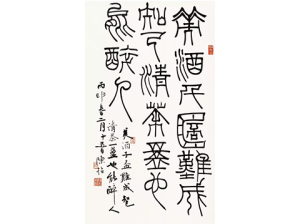 美酒千盃難成
知己清茶壹盞也
能醉人
美酒千盃難成知己
清茶一盞也能醉人
二月十